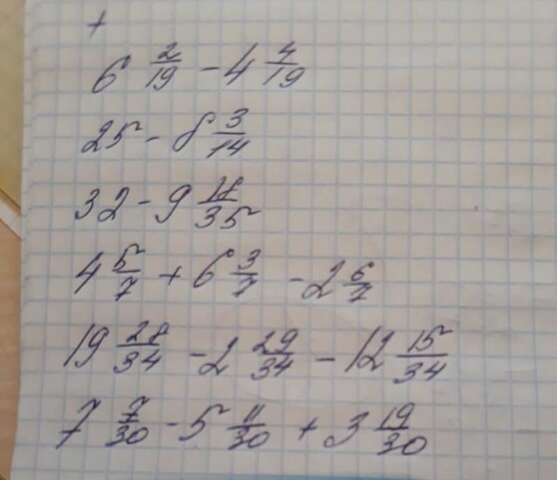 +
6 2/19 - 4 4/19
25 - 8 3/14
32 - 9 18/35
4 5/7 + 6 3/7 - 2 6/7
19 28/34 - 2 29/34 - 12 15/34
7 7/30 - 5 11/30 + 3 19/30